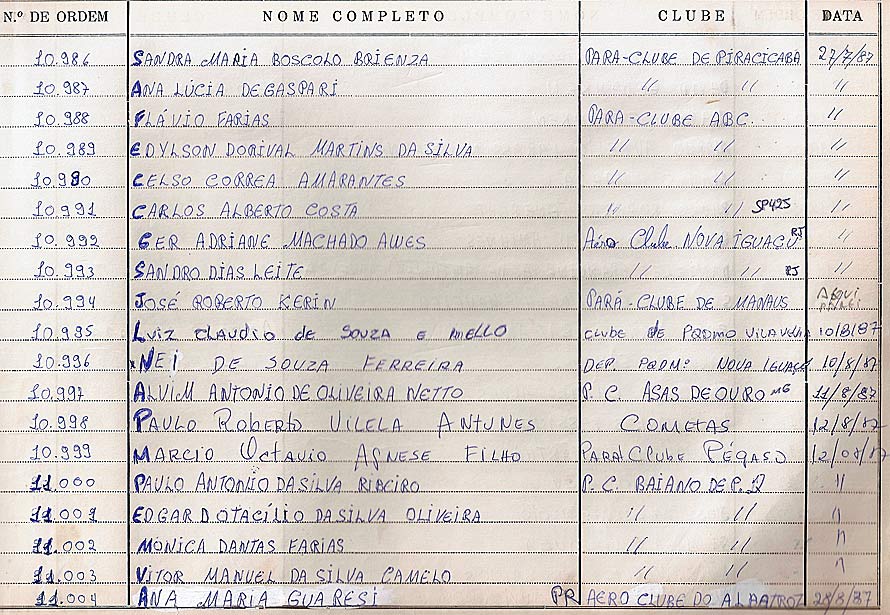 N.º DE ORDEM NOME COMPLETO CLUBE DATA
10.986 SANDRA MARIA BOSCOLO BRIENZA PARA-CLUBE DE PIRACICABA 27/7/87
10.987 ANA LÚCIA DEGASPARI // // //
10.988 FLÁVIO FARIAS PARA-CLUBE ABC. //
10.989 EDYLSON DORIVAL MARTINS DA SILVA // // //
10.990 CELSO CORREA AMARANTES // // //
10.991 CARLOS ALBERTO COSTA // // SP425 //
10.992 GER ADRIANE MACHADO Aéro Clube NOVA IGUAÇU RJ //
10.993 SANDRO DIAS LEITE // // RJ //
10.994 JOSÉ ROBERTO KERIN PARÁ-CLUBE DE MANAUS AQUI
10.995 Luiz claudio de SOUZA e MELLO CLUBE de PQDMO 10/8/87
10.996 NEI DE SOUZA FERREIRA DEP. PQDMº NOVA IGUAÇU 10/8/87
10.997 ALVIM ANTONIO DE OLIVEIRA NETTO P. C. ASAS DE OURO MG 11/8/87
10.998 PAULO ROBERTO VILELA ANTUNES COMETAS 12/8/87
10.999 MARCIO OCTAVIO AGNESE FILHO PARA CLUBE PÉGASO 12/08/87
11.000 PAULO ANTONIO DA SILVA RIBEIRO P. C. BAIANO DE P. Q //
11.001 EDGARD OTACÍLIO DA SILVA OLIVEIRA // // //
11.002 MÔNICA DANTAS FARIAS // // //
11.003 VITOR MANUEL DA SILVA CAMELO // // //
11.004 ANA MARIA GUARESI PR AERO CLUBE DO 28/8/87